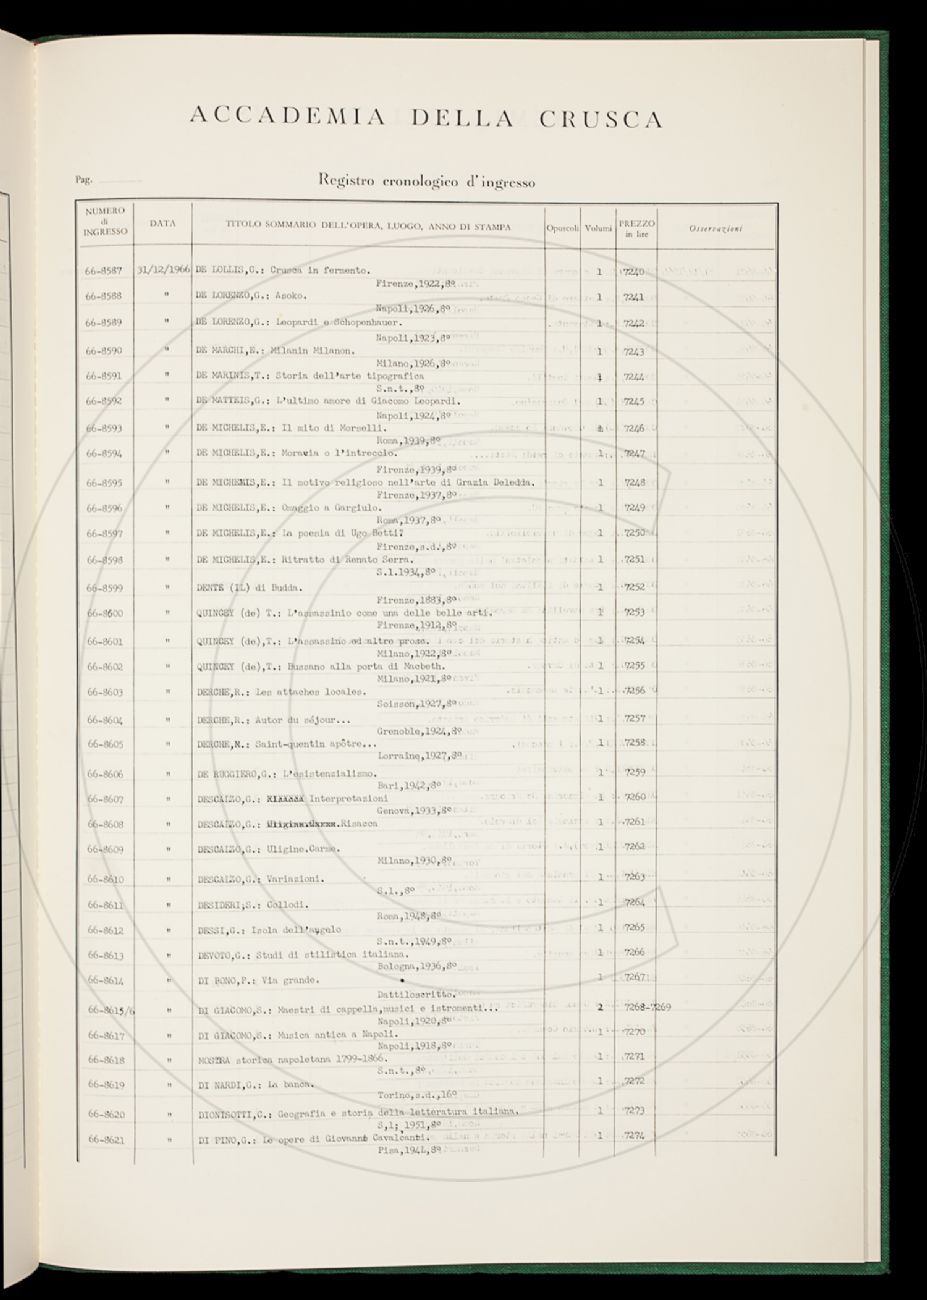 ACCADEMIA DELLA CRUSCA
Pag.
Registro cronologico d'ingresso
NUMERO di INGRESSO DATA TITOLO SOMMARIO DELL'OPERA, LUOGO, ANNO DI STAMPA Opuscoli Volumi PREZZO in lire Osservazioni
66-8587 31/12/1966 DE LOLLIS,C.: Crusca in fermento. 1 7240
Firenze,1922,8º
66-8588 " DE LORENZO,G.: Asoko. 1 7241
Napoli,1926,8º
66-8589 " DE LORENZO,G.: Leopardi e Schopenhauer. 1 7242
Napoli,1923,8º
66-8590 " DE MARCHI,E.: Milanin Milanon. 1 7243
Milano,1926,8º
66-8591 " DE MARINIS,T.: Storia dell'arte tipografica 1 7244
S.n.t.,8º
66-8592 " DE MATTEIS,G.: L'ultimo amore di Giacomo Leopardi. 1 7245
Napoli,1924,8º
66-8593 " DE MICHELIS,E.: Il mito di Morselli. 1 7246
Roma,1939,8º
66-8594 " DE MICHELIS,E.: Moravia o l'intreccio. 1 7247
Firenze,1939,8º
66-8595 " DE MICHELIS,E.: Il motivo religioso nell'arte di Grazia Deledda. 1 7248
Firenze,1937,8º
66-8596 " DE MICHELIS,E.: Omaggio a Gargiulo. 1 7249
Roma,1937,8º
66-8597 " DE MICHELIS,E.: La poesia di Ugo Betti? 1 7250
Firenze,s.d.,8º
66-8598 " DE MICHELIS,E.: Ritratto di Renato Serra. 1 7251
S.l.1934,8º
66-8599 " DENTE (IL) di Budda. 1 7252
Firenze,1883,8º
66-8600 " QUINCEY (de) T.: L'assassinio come una delle belle arti. 1 7253
Firenze,1912,8º
66-8601 " QUINCEY (de),T.: L'assassino ed altre prose. 1 7254
Milano,1922,8º
66-8602 " QUINCEY (de),T.: Bussano alla porta di Macbeth. 1 7255
Milano,1921,8º
66-8603 " DERCHE,R.: Les attaches locales. 1 7256
Soisson,1927,8º
66-8604 " DERCHE,R.: Autor du séjour... 1 7257
Grenoble,1924,8º
66-8605 " DERCHE,M.: Saint-quentin apôtre... 1 7258
Lorraine,1927,8º
66-8606 " DE RUGGIERO,G.: L'esistenzialismo. 1 7259
Bari,1942,8º
66-8607 " DESCALZO,G.: Interpretazioni 1 7260
Genova,1933,8º
66-8608 " DESCALZO,G.: Risacca 1 7261
66-8609 " DESCALZO,G.: Uligine.Carme. 1 7262
Milano,1930,8º
66-8610 " DESCALZO,G.: Variazioni. 1 7263
S.l.,8º
66-8611 " DESIDERI;S.: Collodi. 1 7264
Roma,1948,8º
66-8612 " DESSI,G.: Isola dell'angelo 1 7265
S.n.t.,1949,8º
66-8613 " DEVOTO,G.: Studi di stilistica italiana. 1 7266
Bologna,1936,8º
66-8614 " DI BONO,P.: Via grande. 1 7267
Dattiloscritto.
66-8615/6 " DI GIACOMO,S.: Maestri di cappella,musici e istromenti... 2 7268-7269
Napoli,1920,8º
66-8617 " DI GIACOMO,S.: Musica antica a Napoli. 1 7270
Napoli,1918,8º
66-8618 " MOSTRA storica napoletana 1799-1866. 1 7271
S.n.t.,8º
66-8619 " DI NARDI,G.: La banca. 1 7272
Torino,s.d.,16º
66-8620 " DIONISOTTI,C.: Geografia e storia della letteratura italiana. 1 7273
S,l; 1951,8º
66-8621 " DI PINO,G.: Le opere di Giovanni Cavalcanti. 1 7274
Pisa,194L,8º